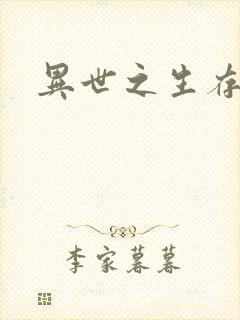 異世之生存
李家暮暮